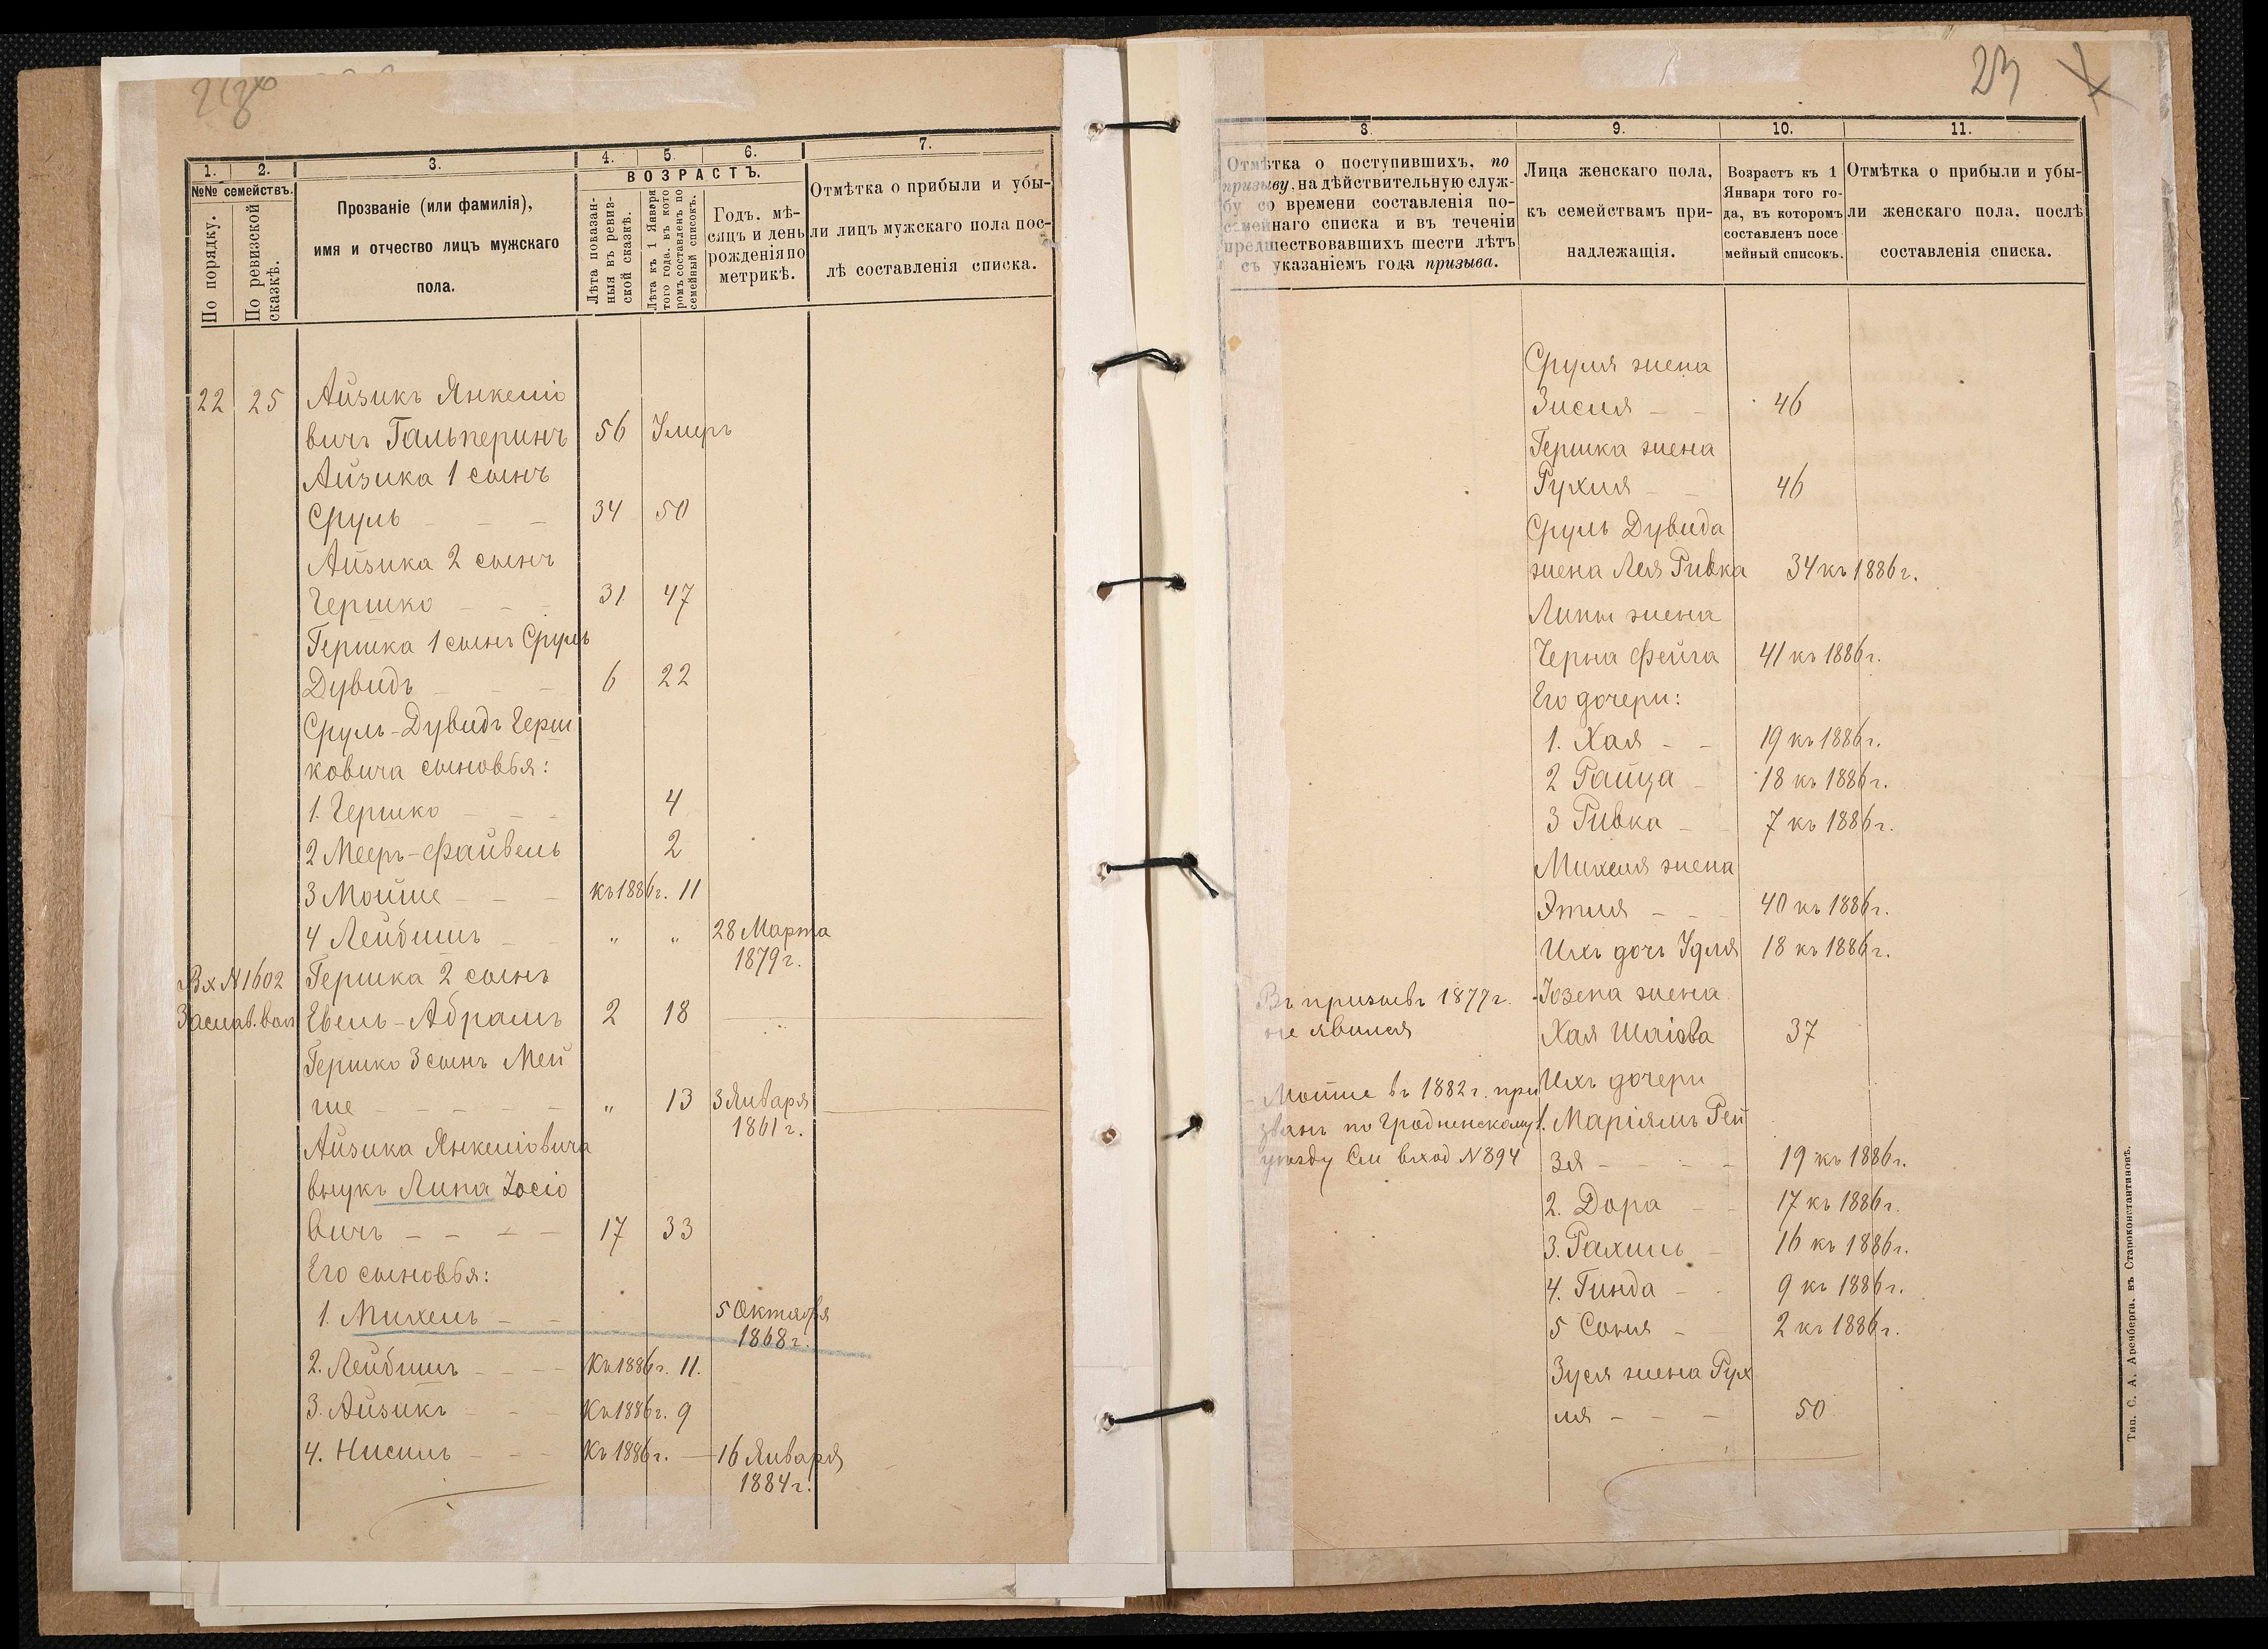 23
1.
2.
3.
4.
5.
6.
7.
№№ семействъ.
По порядку.
По ревизской сказкѣ.
Прозваніе (или фамилія),
имя и отчество лицъ мужскаго
пола.
ВОЗРАСТЪ.
Лѣта показан-
ныя въ ревиз-
ской сказкѣ.
Лѣта къ 1 Января
того года, въ кото
ромъ составленъ по
семейный списокъ.
Годъ, мѣ-
сяцъ и день
рожденія по
метрикѣ.
Отмѣтка о прибыли и убы-
ли лицъ мужскаго пола пос-
лѣ составленія списка.
22 25 Айзикъ Янкеліо
вичъ Гальперинъ 56 Умеръ
Айзика 1 сынъ
Сруль - - - 34 50
Айзика 2 сынъ
Гершко - - - 31 47
Гершка 1 сынъ Сруль
Дувидъ - - - 6 22
Сруль-Дувидъ Герш
ковича сыновья:
1. Гершко - - - 4
2 Мееръ-Файвель 2
3 Мойше - - - къ 1886 г. 11
4 Лейбишъ - - " " 28 Марта
1879 г.
Вх № 1602 Гершка 2 сынъ
Заслав. вол Евель-Абрамъ 2 18
Гершко 3 сынъ Мей
ше - - - - - " 13 3 Января
1861 г.
Айзика Янкеліовича
внукъ Липа Іосіо
вичъ - - - - 17 33
Его сыновья:
1. Михель - - 5 Октября
1868 г.
2. Лейбишъ - - - Къ 1886 г. 11.
3. Айзикъ - - - Къ 1886 г. 9
4. Нисиль - - - Къ 1886 г. — 16 Января
1884 г.
8.
9.
10.
11.
Отмѣтка о поступившихъ, по
призыву, на дѣйствительную служ-
бу со времени составленія по-
семейнаго списка и въ теченіи
предшествовавшихъ шести лѣтъ
съ указаніемъ года призыва.
Лица женскаго пола,
къ семействамъ при-
надлежащія.
Возрастъ къ 1
Января того го-
да, въ которомъ
составленъ посе
мейный списокъ.
Отмѣтка о прибыли и убы-
ли женскаго пола, послѣ
составленія списка.
Сруля жена
Зисля - - 46
Гершка жена
Рухля - - 46
Сруль Дувида
жена Лея Ривка 34 къ 1886 г.
Липы жена
Черна Фейга 41 къ 1886 г.
Его дочери:
1. Хая - - 19 къ 1886 г.
2 Райца - 18 къ 1886 г.
3 Ривка - 7 къ 1886 г.
Михеля жена
Этля - - - 40 къ 1886 г.
Ихъ дочь Удля 18 къ 1886 г.
Въ призывъ 1877 г. Іозепа жена
не явился Хая Шаіова 37
Ихъ дочери
Мойше въ 1882 г. при
званъ по Гродненскому 1. Маріямъ Рей
уѣзду См вход № 894 зя - - - - 19 къ 1886 г.
2. Дора - - 17 къ 1886 г.
3. Рахиль - 16 къ 1886 г.
4. Гинда - - 9 къ 1886 г.
5 Соня - 2 къ 1886 г.
Зуся жена Рух
ля - - - 50
Тип. С. А. Аренберга, въ Староконстантиновѣ.